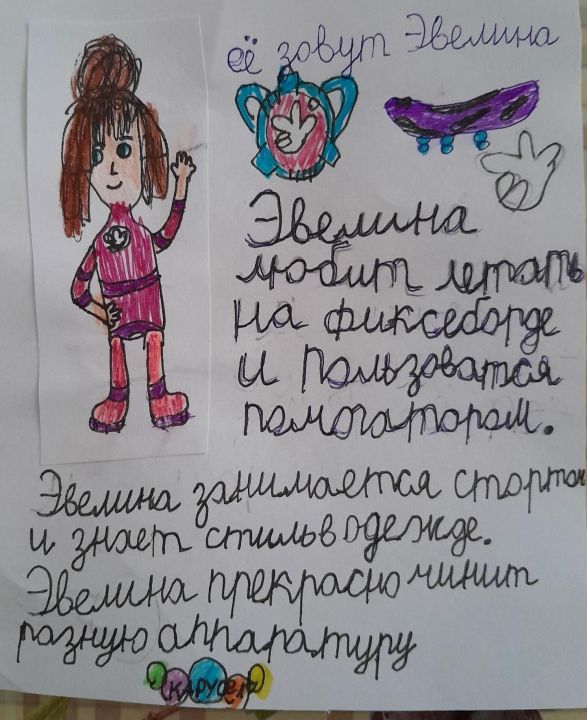 её зовут Эвелина
Эвелина
любит летать
на фикседорде
и пользоватся
помогатором.
Эвелина занимается спортом
и знает стиль в одежде.
Эвелина прекрасно чинит
разную аппаратуру
КАРУСЕЛЬ